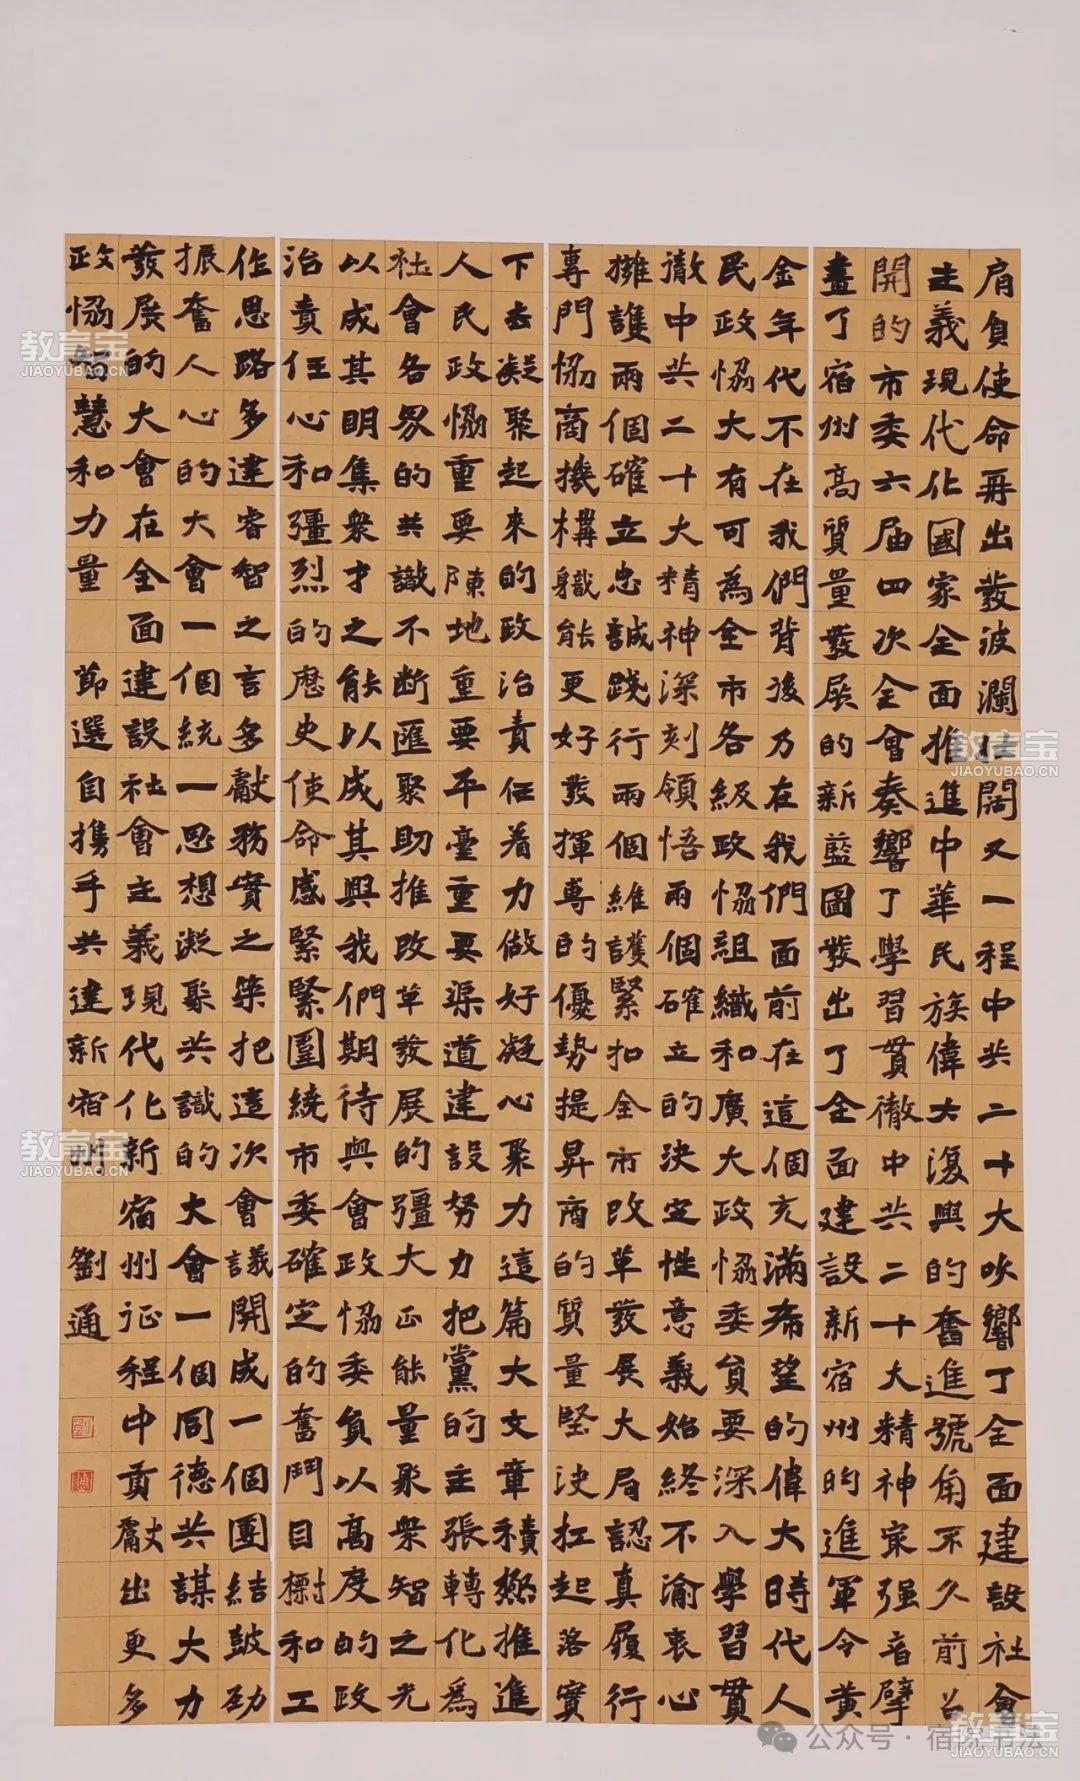 肩負使命再出發波瀾壯闊又一程中共二十大吹響了全面建設社會
主義現代化國家全面推進中華民族偉大復興的奮進號角不久前召
開的市委六届四次全會奏響了學習貫徹中共二十大精神最强音擘
畫了宿州高質量發展的新藍圖發出了全面建設新宿州的進軍令黄
金年代不在我們背後乃在我們面前在這個充滿希望的偉大時代人
民政協大有可為全市各級政協組織和廣大政協委員要深入學習貫
徹中共二十大精神深刻領悟兩個確立的決定性意義始終不渝衷心
擁護兩個確立忠誠踐行兩個維護緊扣全市改革發展大局認真履行
專門協商機構職能更好發揮專的優勢提昇商的質量堅決扛起落實
下去凝聚起來的政治責任着力做好凝心聚力這篇大文章積極推進
人民政協重要陳地重要平臺重要渠道建設努力把黨的主張轉化爲
社會各界的共識不断匯聚助推改革發展的彊大正能量聚衆智之光
以成其明集衆才之能以成其興我們期待與會政協委員以高度的政
治責任心和彊烈的歷史使命感緊緊圍繞市委確定的奮鬥目標和工
作思路多建睿智之言多獻務實之策把這次會議開成一個團結鼓劲
振奮人心的大會一個統一思想凝聚共識的大會一個同德共謀大力
發展的大會在全面建設社會主義現代化新宿州征程中貢獻出更多
政協智慧和力量 節選自携手共建新宿州 劉通
教育宝
JIAOYUBAO.CN
教育宝
JIAOYUBAO.CN
教育宝
JIAOYUBAO.CN
公众号·宿院书法
教育宝
JIAOYUBAO.CN